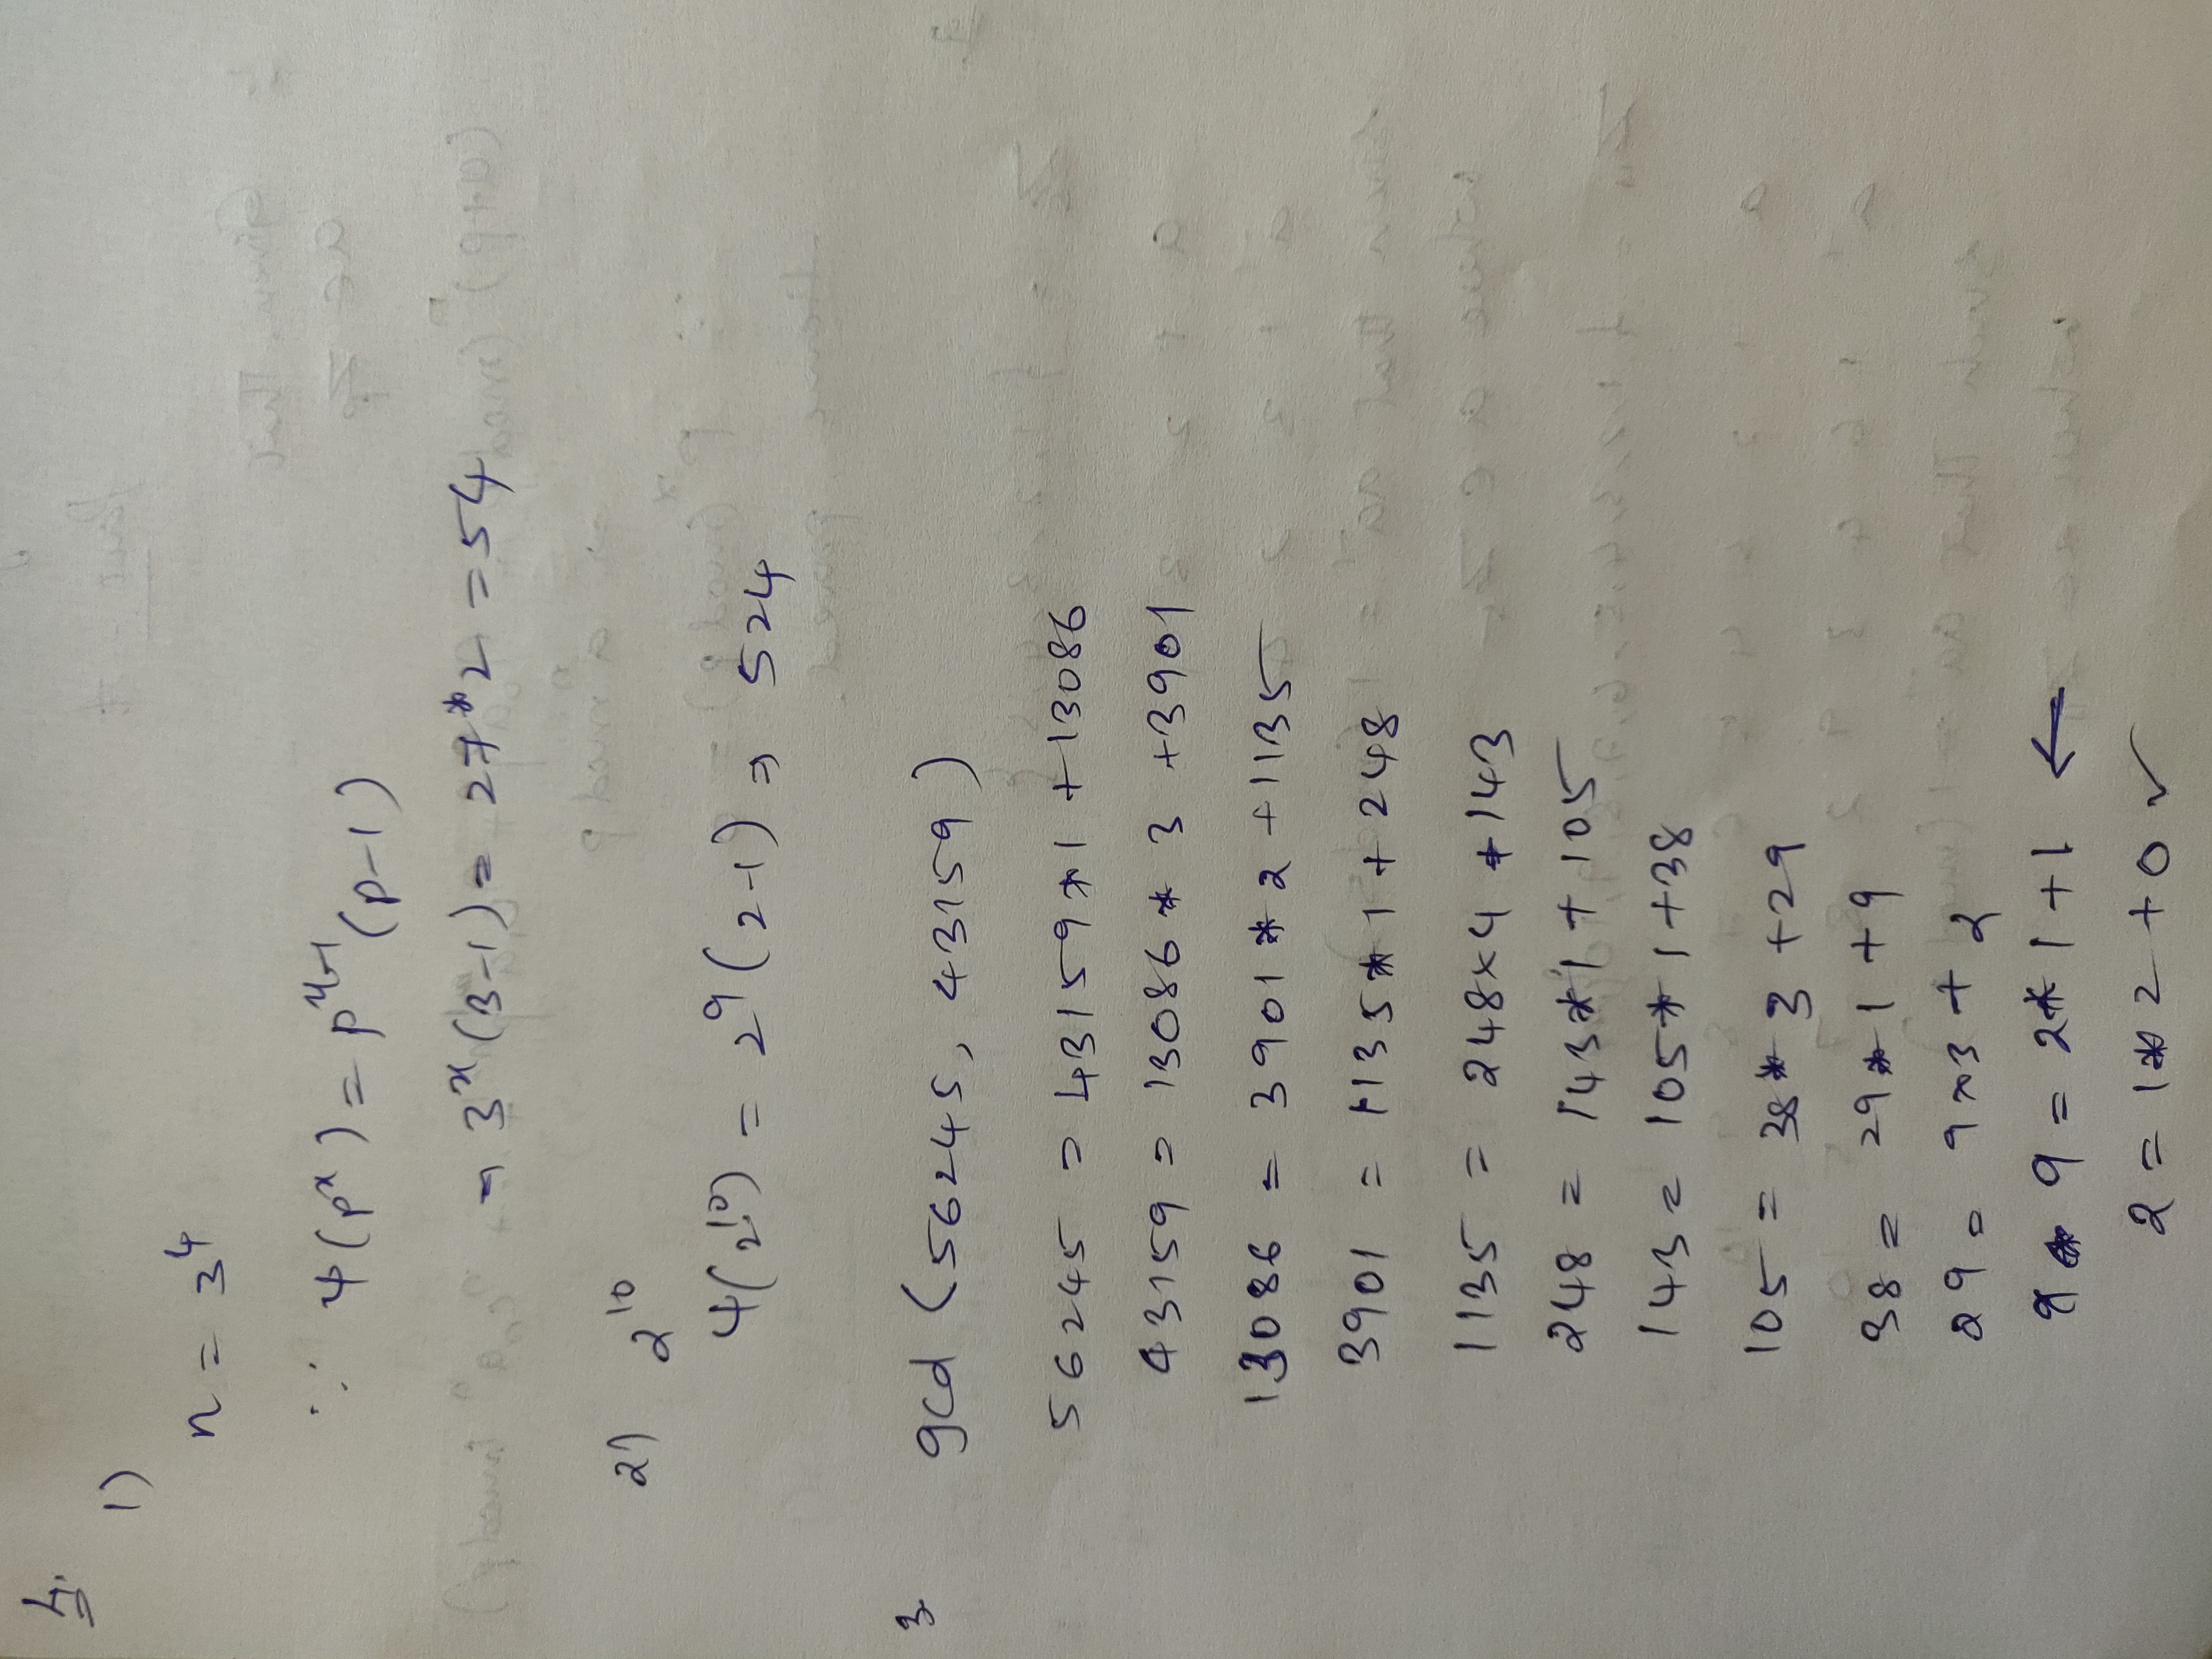 4.
1)
n = 3^4
∵ φ(p^x) = p^{x-1}(p-1)
⇒ 3^x(3-1) = 27*2 = 54
2) 2^10
φ(2^10) = 2^9(2-1) ⇒ 524
3 gcd (56245, 43159)
56245 = 43159*1 +13086
43159 = 13086 * 3 +3901
13086 = 3901 * 2 +1135
3901 = 1135*1 + 248
1135 = 248×4 +143
248 = 143*1 + 105
143 = 105* 1 +38
105 = 38* 3 +29
38 = 29*1 +9
29 = 9×3 + 2
9 = 2* 1 +1 ←
2 = 1*2 +0 ✓